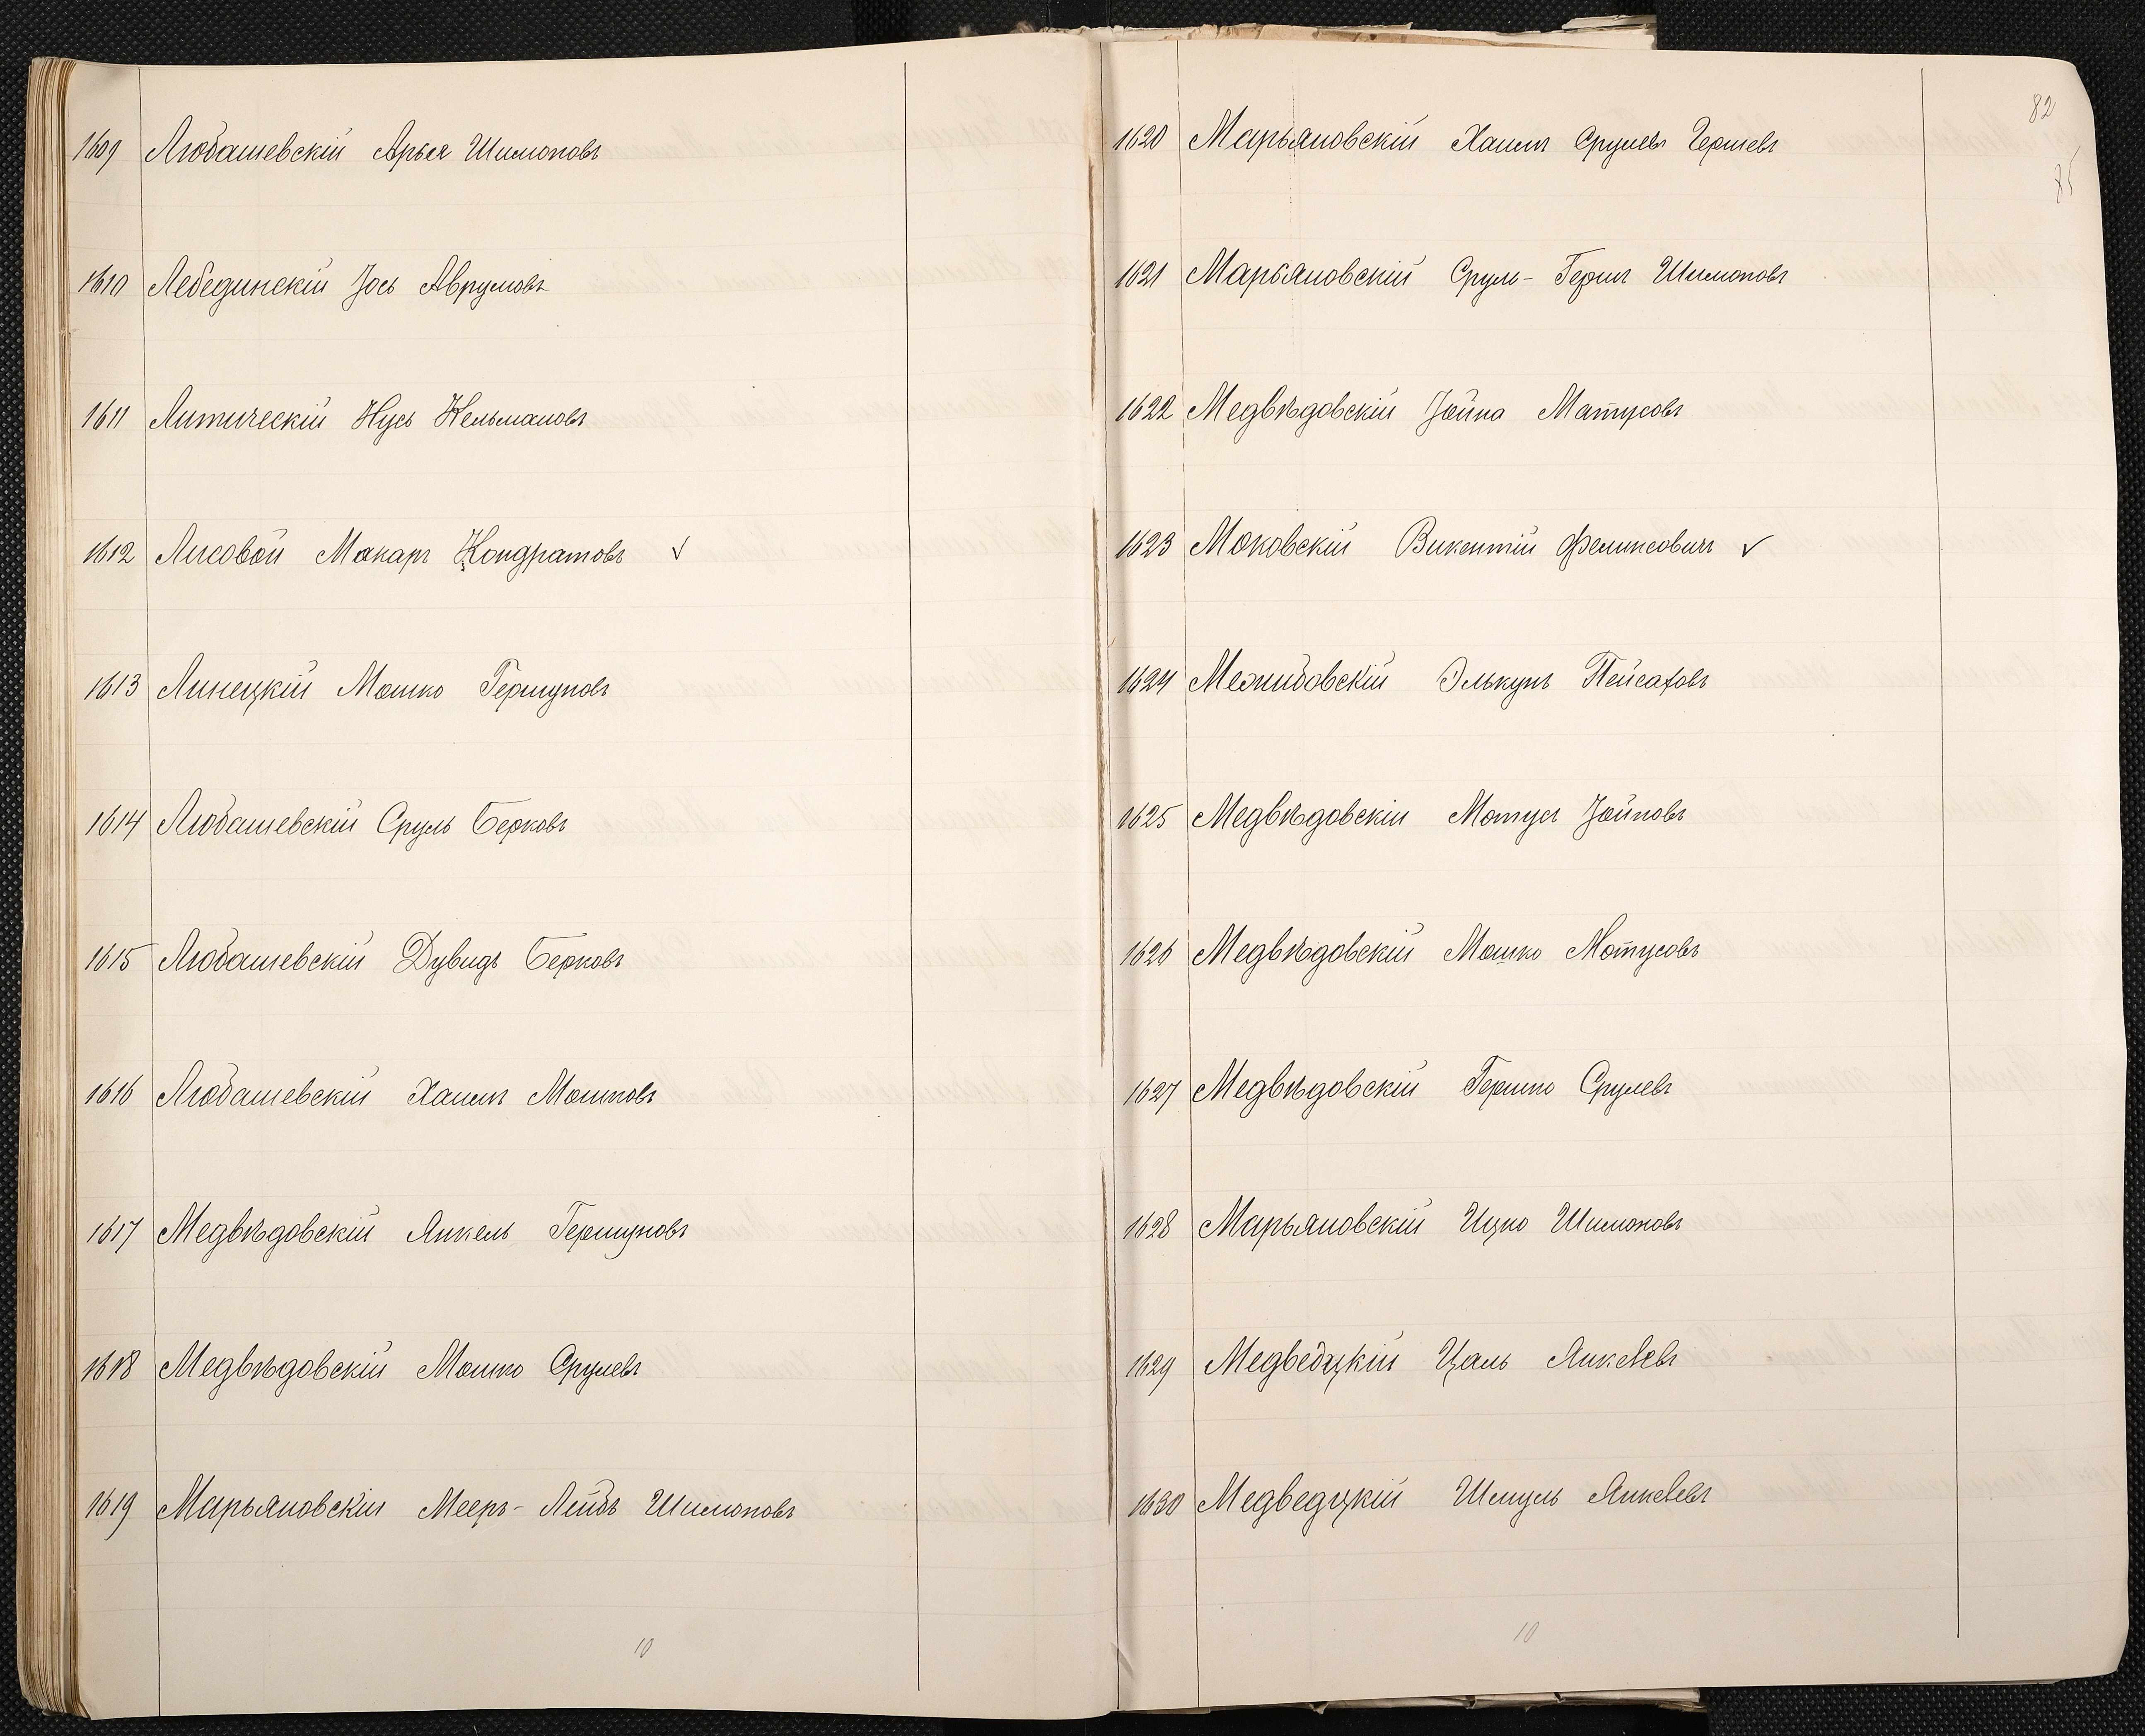 1609 Любашевскій Арья Шимоновъ
1610 Лебединскій Іось Аврумовъ
1611 Литическій Нусь Кельмановъ
1612 Лисовой Макаръ Кондратовъ √
1613 Линецкій Мошко Гершуновъ
1614 Любашевскій Сруль Берковъ
1615 Любашевскій Дувидъ Берковъ
1616 Любашевскій Хаимъ Мошковъ
1617 Медвѣдовскій Янкель Гершуновъ
1618 Медвѣдовскій Мошко Срулевъ
1619 Марьяновскій Мееръ-Лейбъ Шимоновъ
10
82
85
1620 Марьяновскій Хаимъ Срулевъ Гершевъ
1621 Марьяновскій Сруль-Гершъ Шимоновъ
1622 Медвѣдовскій Іойна Матусовъ
1623 Моковскій Викентій Феликсовичъ √
1624 Межибовскій Элькунъ Пейсаховъ
1625 Медвѣдовскій Мотусъ Іойновъ
1626 Медвѣдовскій Мошко Мотусовъ
1627 Медвѣдовскій Гершко Срулевъ
1628 Марьяновскій Ицко Шимоновъ
1629 Медведцкій Цаль Янкелевъ
1630 Медведцкій Шмуль Янкелевъ
10